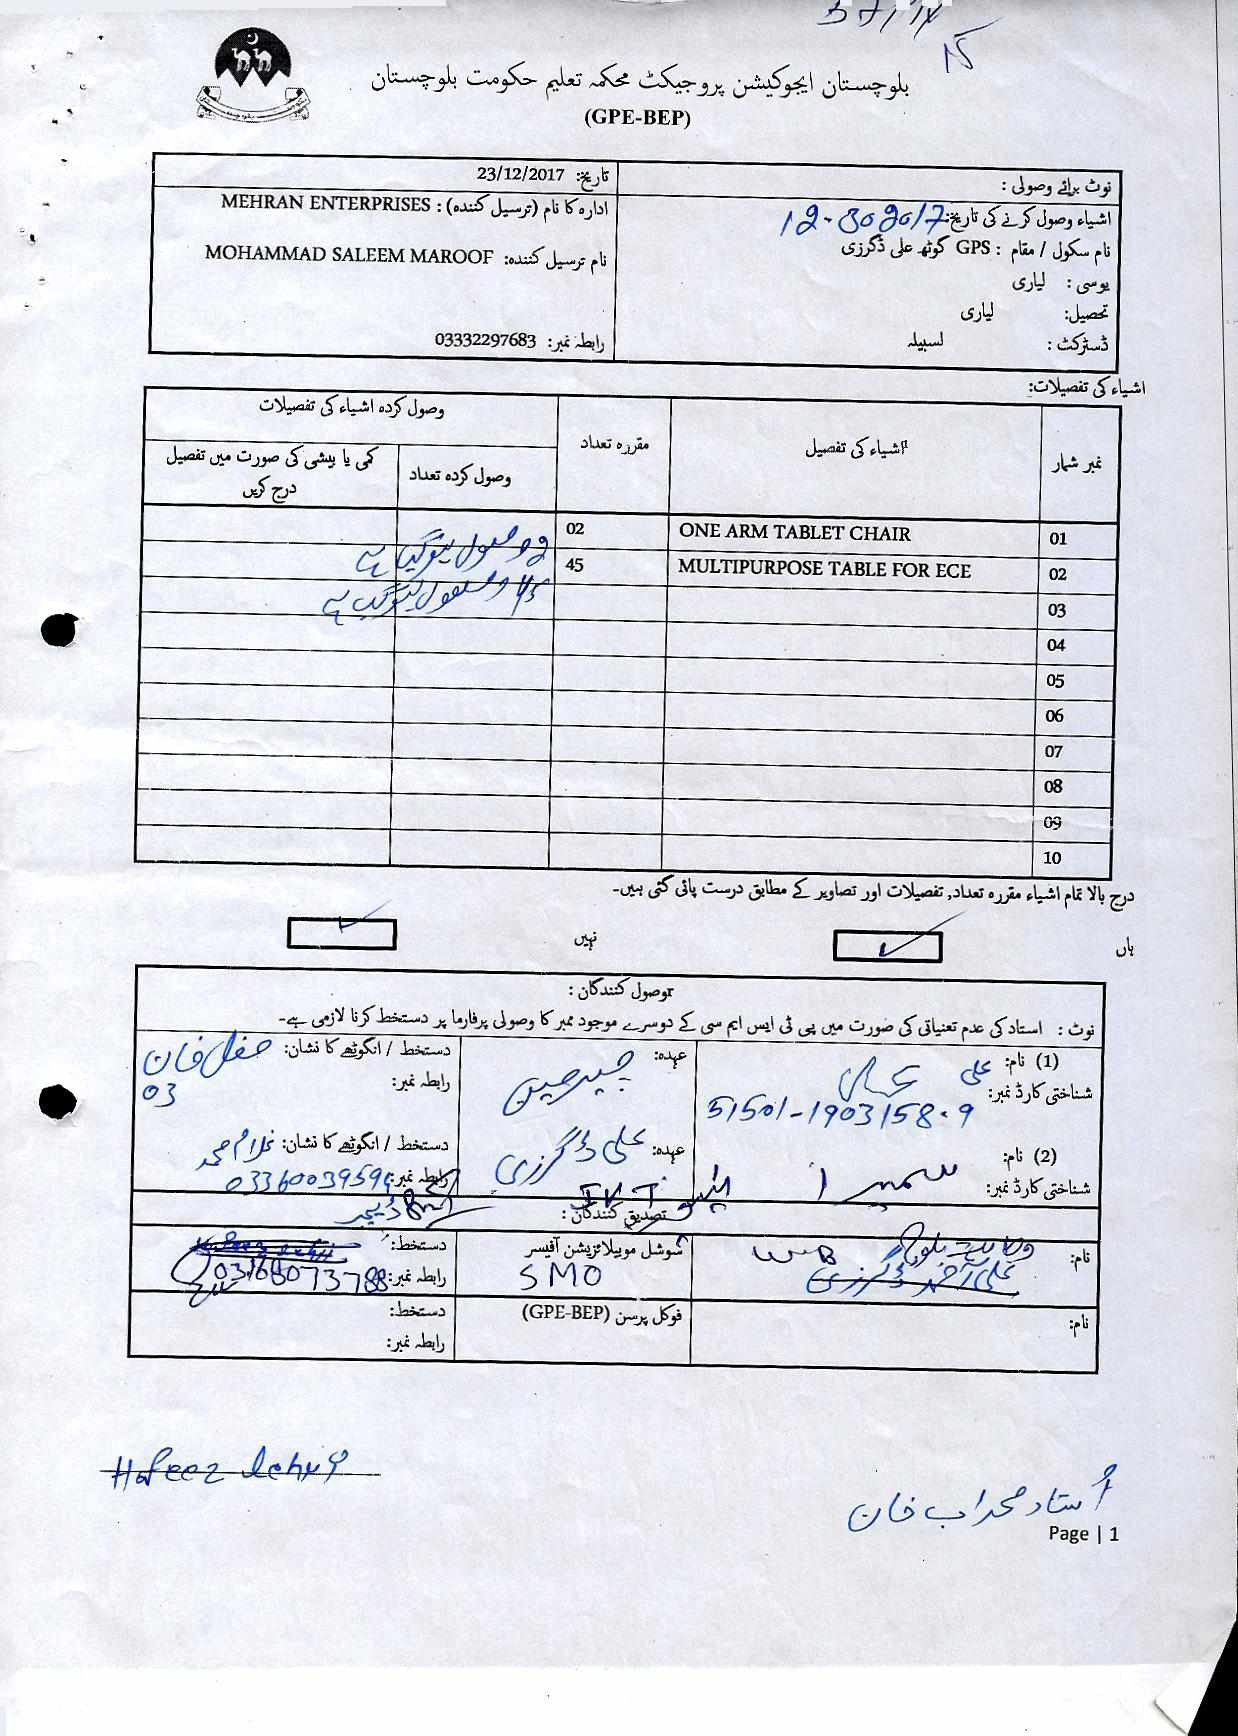 بلوچستان ایجوکیشن پروجیکٹ محکمہ تعلیم حکومت بلوچستان
(GPE-BEP)
نوٹ برائے وصولی :
اشیاء وصول کرنے کی تاریخ:
نام سکول / مقام : GPS گوٹھ علی ڈگرزی
یوسی : لیاری
تحصیل: لیاری
ڈسٹرکٹ : لسبیلہ
تاریخ: 23/12/2017
ادارہ کا نام (ترسیل کنندہ) : MEHRAN ENTERPRISES
نام ترسیل کنندہ: MOHAMMAD SALEEM MAROOF
رابطہ نمبر: 03332297683
اشیاء کی تفصیلات:
نمبر شمار اشیاء کی تفصیل مقررہ تعداد وصول کردہ اشیاء کی تفصیلات
وصول کردہ تعداد کمی یا بیشی کی صورت میں تفصیل درج کریں
01 ONE ARM TABLET CHAIR 02 وصول ہوگیا ہے
02 MULTIPURPOSE TABLE FOR ECE 45 45 وصول ہوگیا ہے
03
04
05
06
07
08
09
10
درج بالا تمام اشیاء مقررہ تعداد, تفصیلات اور تصاویر کے مطابق درست پائی گئی ہیں۔
ہاں نہیں
موصول کنندگان :
نوٹ : استاد کی عدم تعنیاتی کی صورت میں پی ٹی ایس ایم سی کے دوسرے موجود ممبر کا وصولی پرفارما پر دستخط کرنا لازمی ہے۔
(1) نام: علی عہدہ: چیئرمین دستخط / انگوٹھے کا نشان:
شناختی کارڈ نمبر: 51501-1903158-9 رابطہ نمبر: 03
(2) نام: عہدہ: علی ڈگرزی دستخط / انگوٹھے کا نشان: غلام محمد
شناختی کارڈ نمبر: رابطہ نمبر:
تصدیق کنندگان :
نام: شوشل موبیلائزیشن آفیسر دستخط:
SMO رابطہ نمبر:
نام: فوکل پرسن (GPE-BEP) دستخط:
رابطہ نمبر:
Hafeez
استاد محراب خان
Page | 1